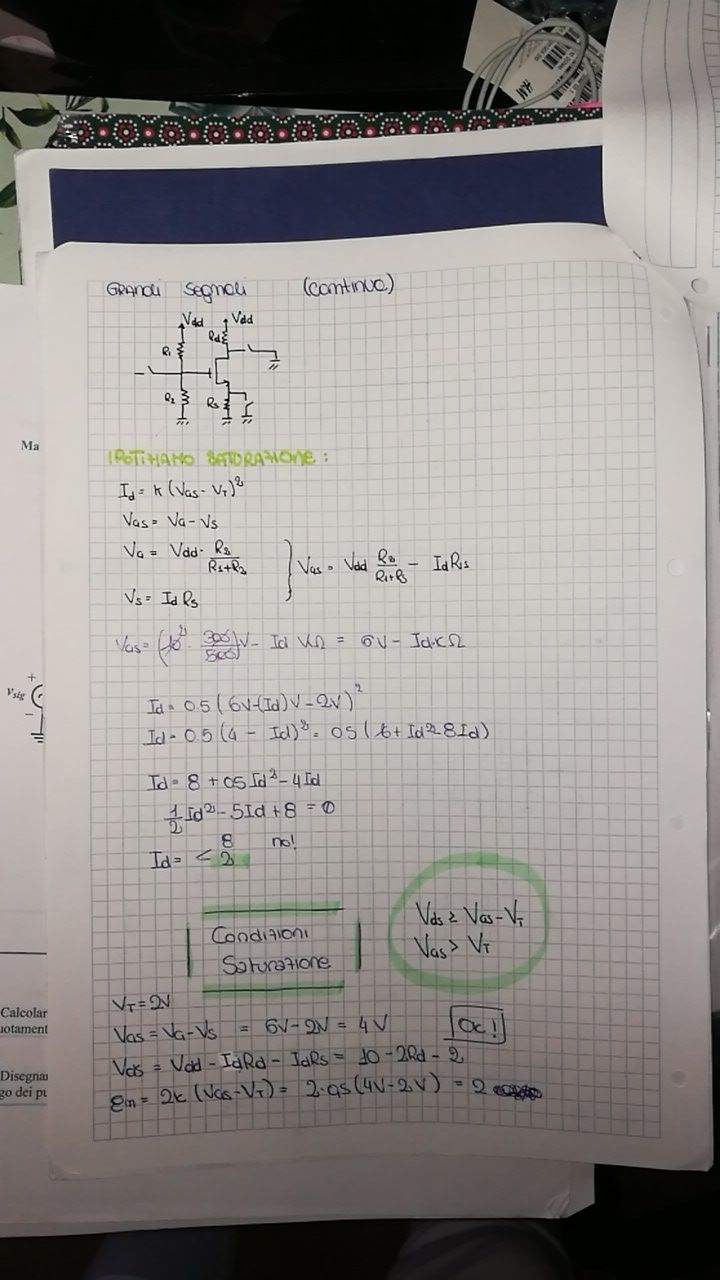 GRANDI SEGNALI (continua)
Vdd Vdd
R1 Rd
R2 Rs
IPOTIZIAMO SATURAZIONE:
Id = K (VGS - VT)²
VGS = VG - VS
VG = Vdd · R2/(R1+R2)
VS = Id RS
VGS = Vdd R2/(R1+R2) - Id RS
VGS = ( · 300/500)V - Id KΩ = 6V - Id·KΩ
Id = 0.5 (6V-(Id)V - 2V)²
Id = 0.5 (4 - Id)² = 05 (16 + Id² - 8Id)
Id = 8 + 05 Id² - 4Id
1/2 Id² - 5Id + 8 = 0
Id = < 8 no!
2
Condizioni
Saturazione
Vds ≥ VGS - VT
VGS > VT
VT = 2V
VGS = VG - VS = 6V - 2V = 4V OK!
Vds = Vdd - IdRd - IdRs = 10 - 2Rd - 2
gm = 2K (VGS - VT) = 2·0,5 (4V - 2V) = 2
Ma
vsig
+
−
Calcolar
uotament
Disegna
go dei pu